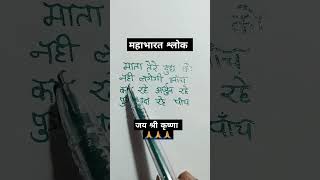 महाभारत श्लोक
माता तेरे पुत्र को
नही लगेगी आँच
रहे अर्जुन रहे
रहे पाँच
जय श्री कृष्णा
🙏🙏🙏